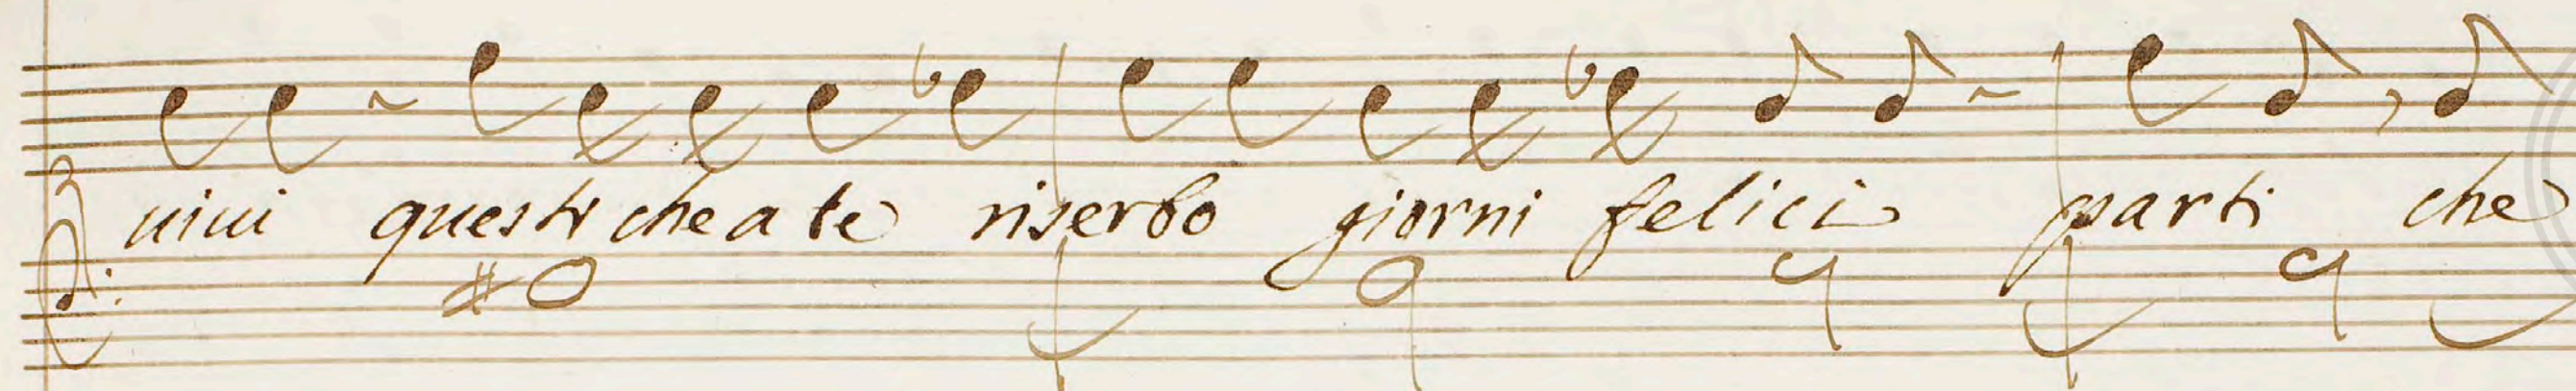 uiui questi che a te riserbo giorni felici parti che